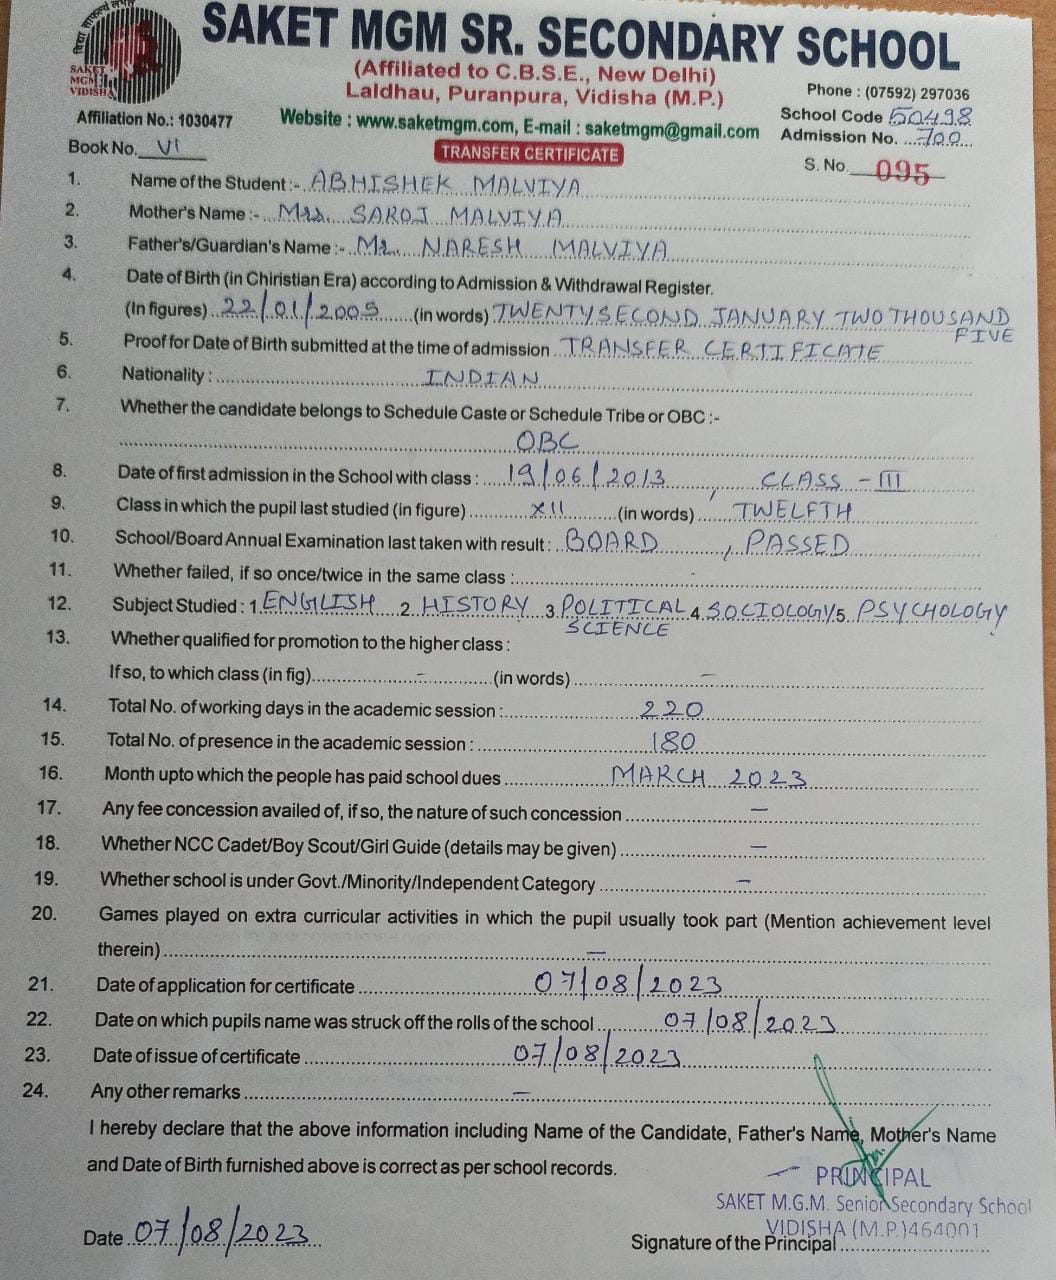 विद्या साफल्यं लभते
SAKET MGM SR. SECONDARY SCHOOL
SAKET
MGM
VIDISHA
(Affiliated to C.B.S.E., New Delhi)
Laldhau, Puranpura, Vidisha (M.P.)
Phone : (07592) 297036
Affiliation No.: 1030477
Website : www.saketmgm.com, E-mail : saketmgm@gmail.com
School Code 50498
Admission No. 700
Book No. VI
TRANSFER CERTIFICATE
S. No. 095
1. Name of the Student :- ABHISHEK MALVIYA
2. Mother's Name :- Mrs. SAROJ MALVIYA
3. Father's/Guardian's Name :- Mr. NARESH MALVIYA
4. Date of Birth (in Chiristian Era) according to Admission & Withdrawal Register.
(In figures) 22/01/2005 (in words) TWENTY SECOND JANUARY TWO THOUSAND
FIVE
5. Proof for Date of Birth submitted at the time of admission TRANSFER CERTIFICATE
6. Nationality : INDIAN
7. Whether the candidate belongs to Schedule Caste or Schedule Tribe or OBC :-
OBC
8. Date of first admission in the School with class : 19/06/2013, CLASS - III
9. Class in which the pupil last studied (in figure) XII (in words) TWELFTH
10. School/Board Annual Examination last taken with result : BOARD, PASSED
11. Whether failed, if so once/twice in the same class : -
12. Subject Studied : 1. ENGLISH 2. HISTORY 3. POLITICAL 4. SOCIOLOGY 5. PSYCHOLOGY
SCIENCE
13. Whether qualified for promotion to the higher class :
If so, to which class (in fig) - (in words) -
14. Total No. of working days in the academic session : 220
15. Total No. of presence in the academic session : 180
16. Month upto which the people has paid school dues MARCH 2023
17. Any fee concession availed of, if so, the nature of such concession -
18. Whether NCC Cadet/Boy Scout/Girl Guide (details may be given) -
19. Whether school is under Govt./Minority/Independent Category -
20. Games played on extra curricular activities in which the pupil usually took part (Mention achievement level
therein) -
21. Date of application for certificate 07/08/2023
22. Date on which pupils name was struck off the rolls of the school 07/08/2023
23. Date of issue of certificate 07/08/2023
24. Any other remarks -
I hereby declare that the above information including Name of the Candidate, Father's Name, Mother's Name
and Date of Birth furnished above is correct as per school records.
PRINCIPAL
SAKET M.G.M. Senior Secondary School
VIDISHA (M.P.) 464001
Date 07/08/2023
Signature of the Principal